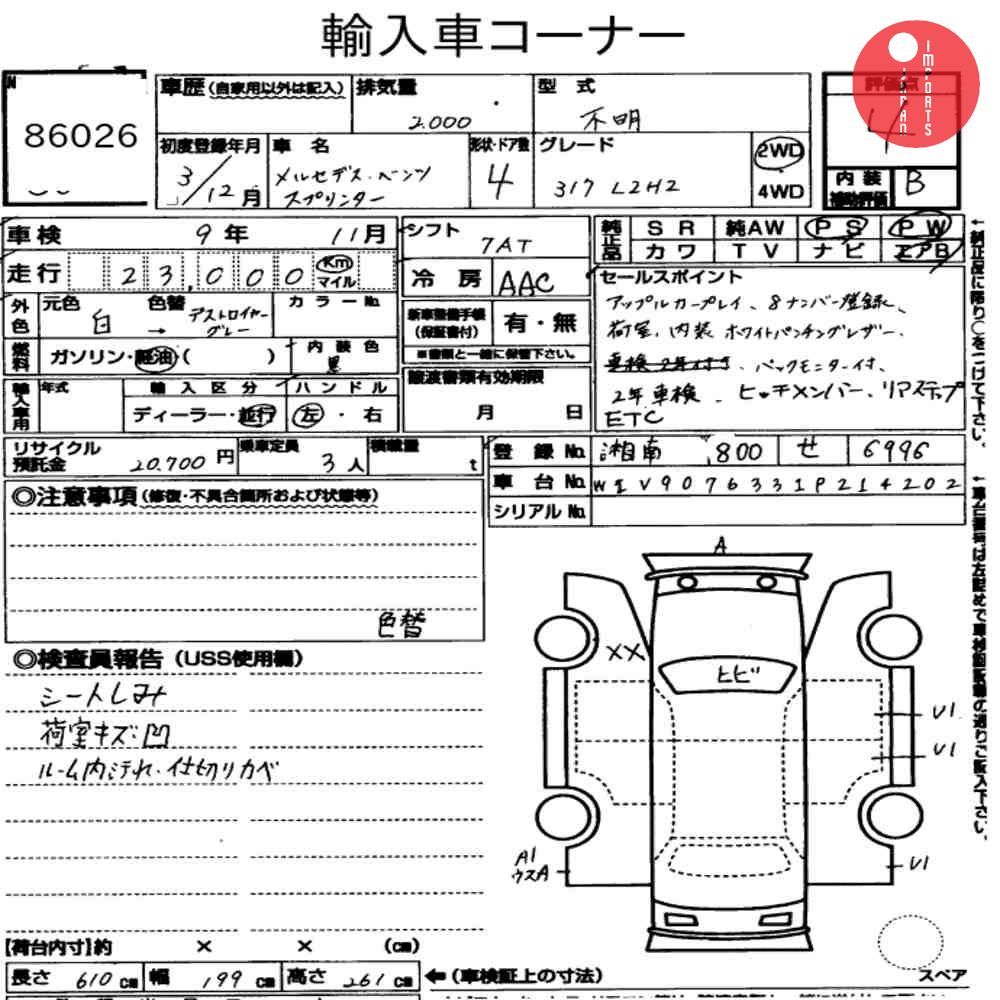 輸入車コーナー
JAPAN IMPORTS
N
86026
車歴(自家用以外は記入)
排気量 2.000
型式 不明
評価点 4
初度登録年月 3/12月
車名 メルセデス・ベンツ スプリンター
形状・ドア数 4
グレード 317 L2H2
2WD
4WD
内装補助評価 B
車検 9年 11月
走行 23,000 Km マイル
シフト 7AT
冷房 AAC
純正品 SR 純AW PS PW
カワ TV ナビ エアB
外色 元色 白 → 色替 デストロイヤーグレー カラーNo.
燃料 ガソリン・軽油( )
内装色 黒
新車整備手帳(保証書付) 有・無
※書類と一緒に保管下さい。
セールスポイント
アップルカープレイ、8ナンバー登録、
荷室、内装 ホワイトパンチングレザー、
車検2年付き、バックモニター付、
2年車検、ヒッチメンバー、リアステップ
ETC
輸入車用 年式 輸入区分 ディーラー・並行
ハンドル 左・右
譲渡書類有効期限 月 日
リサイクル預託金 20.700円
乗車定員 3人
積載量 t
登録No. 湘南 800 せ 6996
車台No. W1V9076331P214202
シリアルNo.
◎注意事項(修復・不具合箇所および状態等)
色替
◎検査員報告(USS使用欄)
シートしみ
荷室キズ・凹
ルーム内汚れ・仕切りカベ
A
XX
トビ
U1
U1
A1
ウスA
U1
スペア
【荷台内寸】約 × × (cm)
長さ 610cm 幅 199cm 高さ 261cm ←(車検証上の寸法)